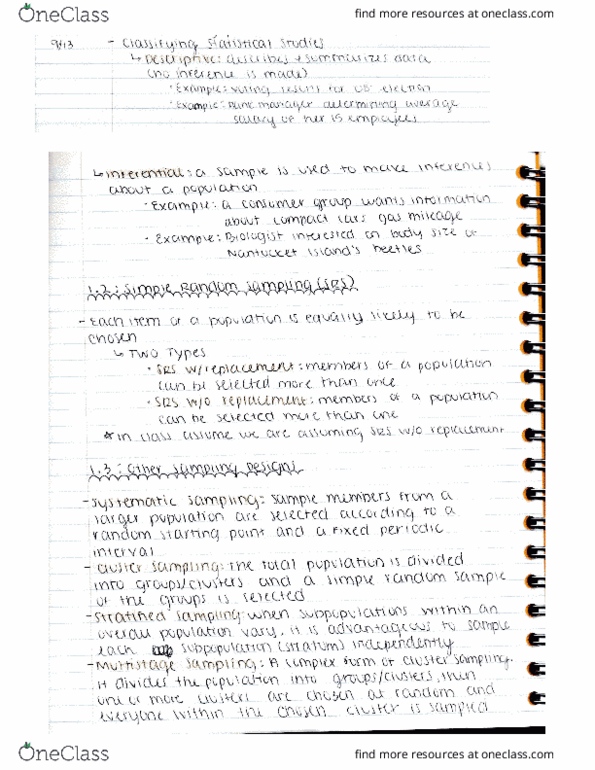 OneClass
find more resources at oneclass.com
9/13 - Classifying Statistical Studies
↳ Descriptive: describes + summarizes data
(no inference is made)
· Example: voting results for US election
· Example: Bank manager determining average
salary of her 15 employees
↳ Inferential: a sample is used to make inferences
about a population
· Example: a consumer group wants information
about compact cars gas mileage
· Example: Biologist interested on body size of
Nantucket Island's beetles
1.2: Simple Random Sampling (SRS)
- Each item of a population is equally likely to be
chosen
↳ Two Types
· SRS w/replacement: members of a population
can be selected more than once
· SRS w/o replacement: members of a population
can be selected more than one
* in class assume we are assuming SRS w/o replacement
1.3: Other Sampling Designs
- Systematic Sampling: sample members from a
larger population are selected according to a
random starting point and a fixed periodic
interval
- Cluster Sampling: The total population is divided
into groups/clusters and a simple random sample
of the groups is selected
- Stratified Sampling: when subpopulations within an
overall population vary, it is advantageous to sample
each subpopulation (stratum) independently
- Multistage Sampling: A complex form of cluster sampling.
It divides the population into groups/clusters, then
one or more clusters are chosen at random and
everyone within the chosen cluster is sampled
OneClass
find more resources at oneclass.com